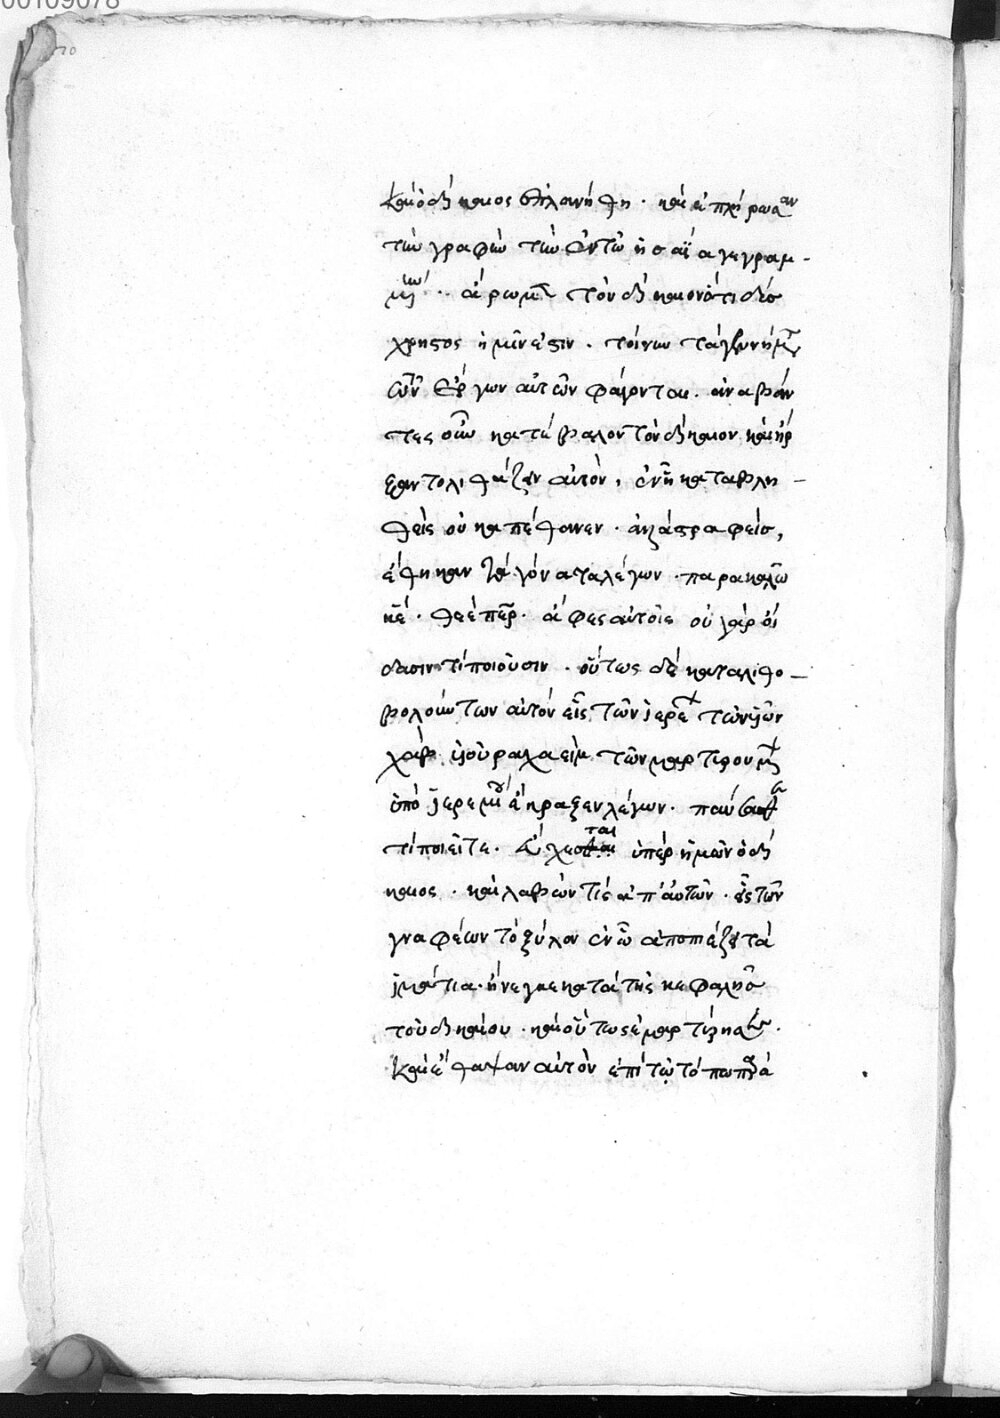 00109078
καὶ ὁ δίκαιος ἐπλανήθη · καὶ ἐπλήρωσαν
τὴν γραφὴν τὴν ἐν τῶ ἡσαΐα γεγραμ-
μένην · ἄρωμεν τὸν δίκαιον ὅτι δύσ
χρηστος ἡμῖν ἐστιν · τοίνυν τὰ γεννήματα
τῶν ἔργων αὐτῶν φάγονται · ἀναβάν
τες οὖν κατέβαλον τὸν δίκαιον καὶ ἤρ
ξαντο λιθάζειν αὐτὸν, ἐπεὶ καταβλη-
θεὶς οὐκ ἀπέθανεν · ἀλλὰ στραφεὶς,
ἔθηκεν τὰ γόνατα λέγων · παρακαλῶ
κε · θεὲ περ · ἄφες αὐτοῖς οὐ γὰρ οἴ
δασιν τί ποιοῦσιν · οὕτως δὲ καταλιθο-
βολούντων αὐτὸν εἷς τῶν ἱερέων τῶν υἱῶν
ῥαχὰβ υἱοῦ ραχαβεὶμ τῶν μαρτυρουμένων
ὑπὸ ἱερεμίου ἔκραξεν λέγων · παύσασθε
τί ποιεῖτε · εὔχεται ὑπὲρ ἡμῶν ὁ δί
καιος · καὶ λαβών τις ἀπ' αὐτῶν · εἷς τῶν
γναφέων τὸ ξύλον ἐν ᾧ ἀποπιέζει τὰ
ἱμάτια · ἤνεγκε κατὰ τῆς κεφαλῆς
τοῦ δικαίου · καὶ οὕτως ἐμαρτύρησεν ·
Καὶ ἔθαψαν αὐτὸν ἐπὶ τῷ τόπῳ παρὰ